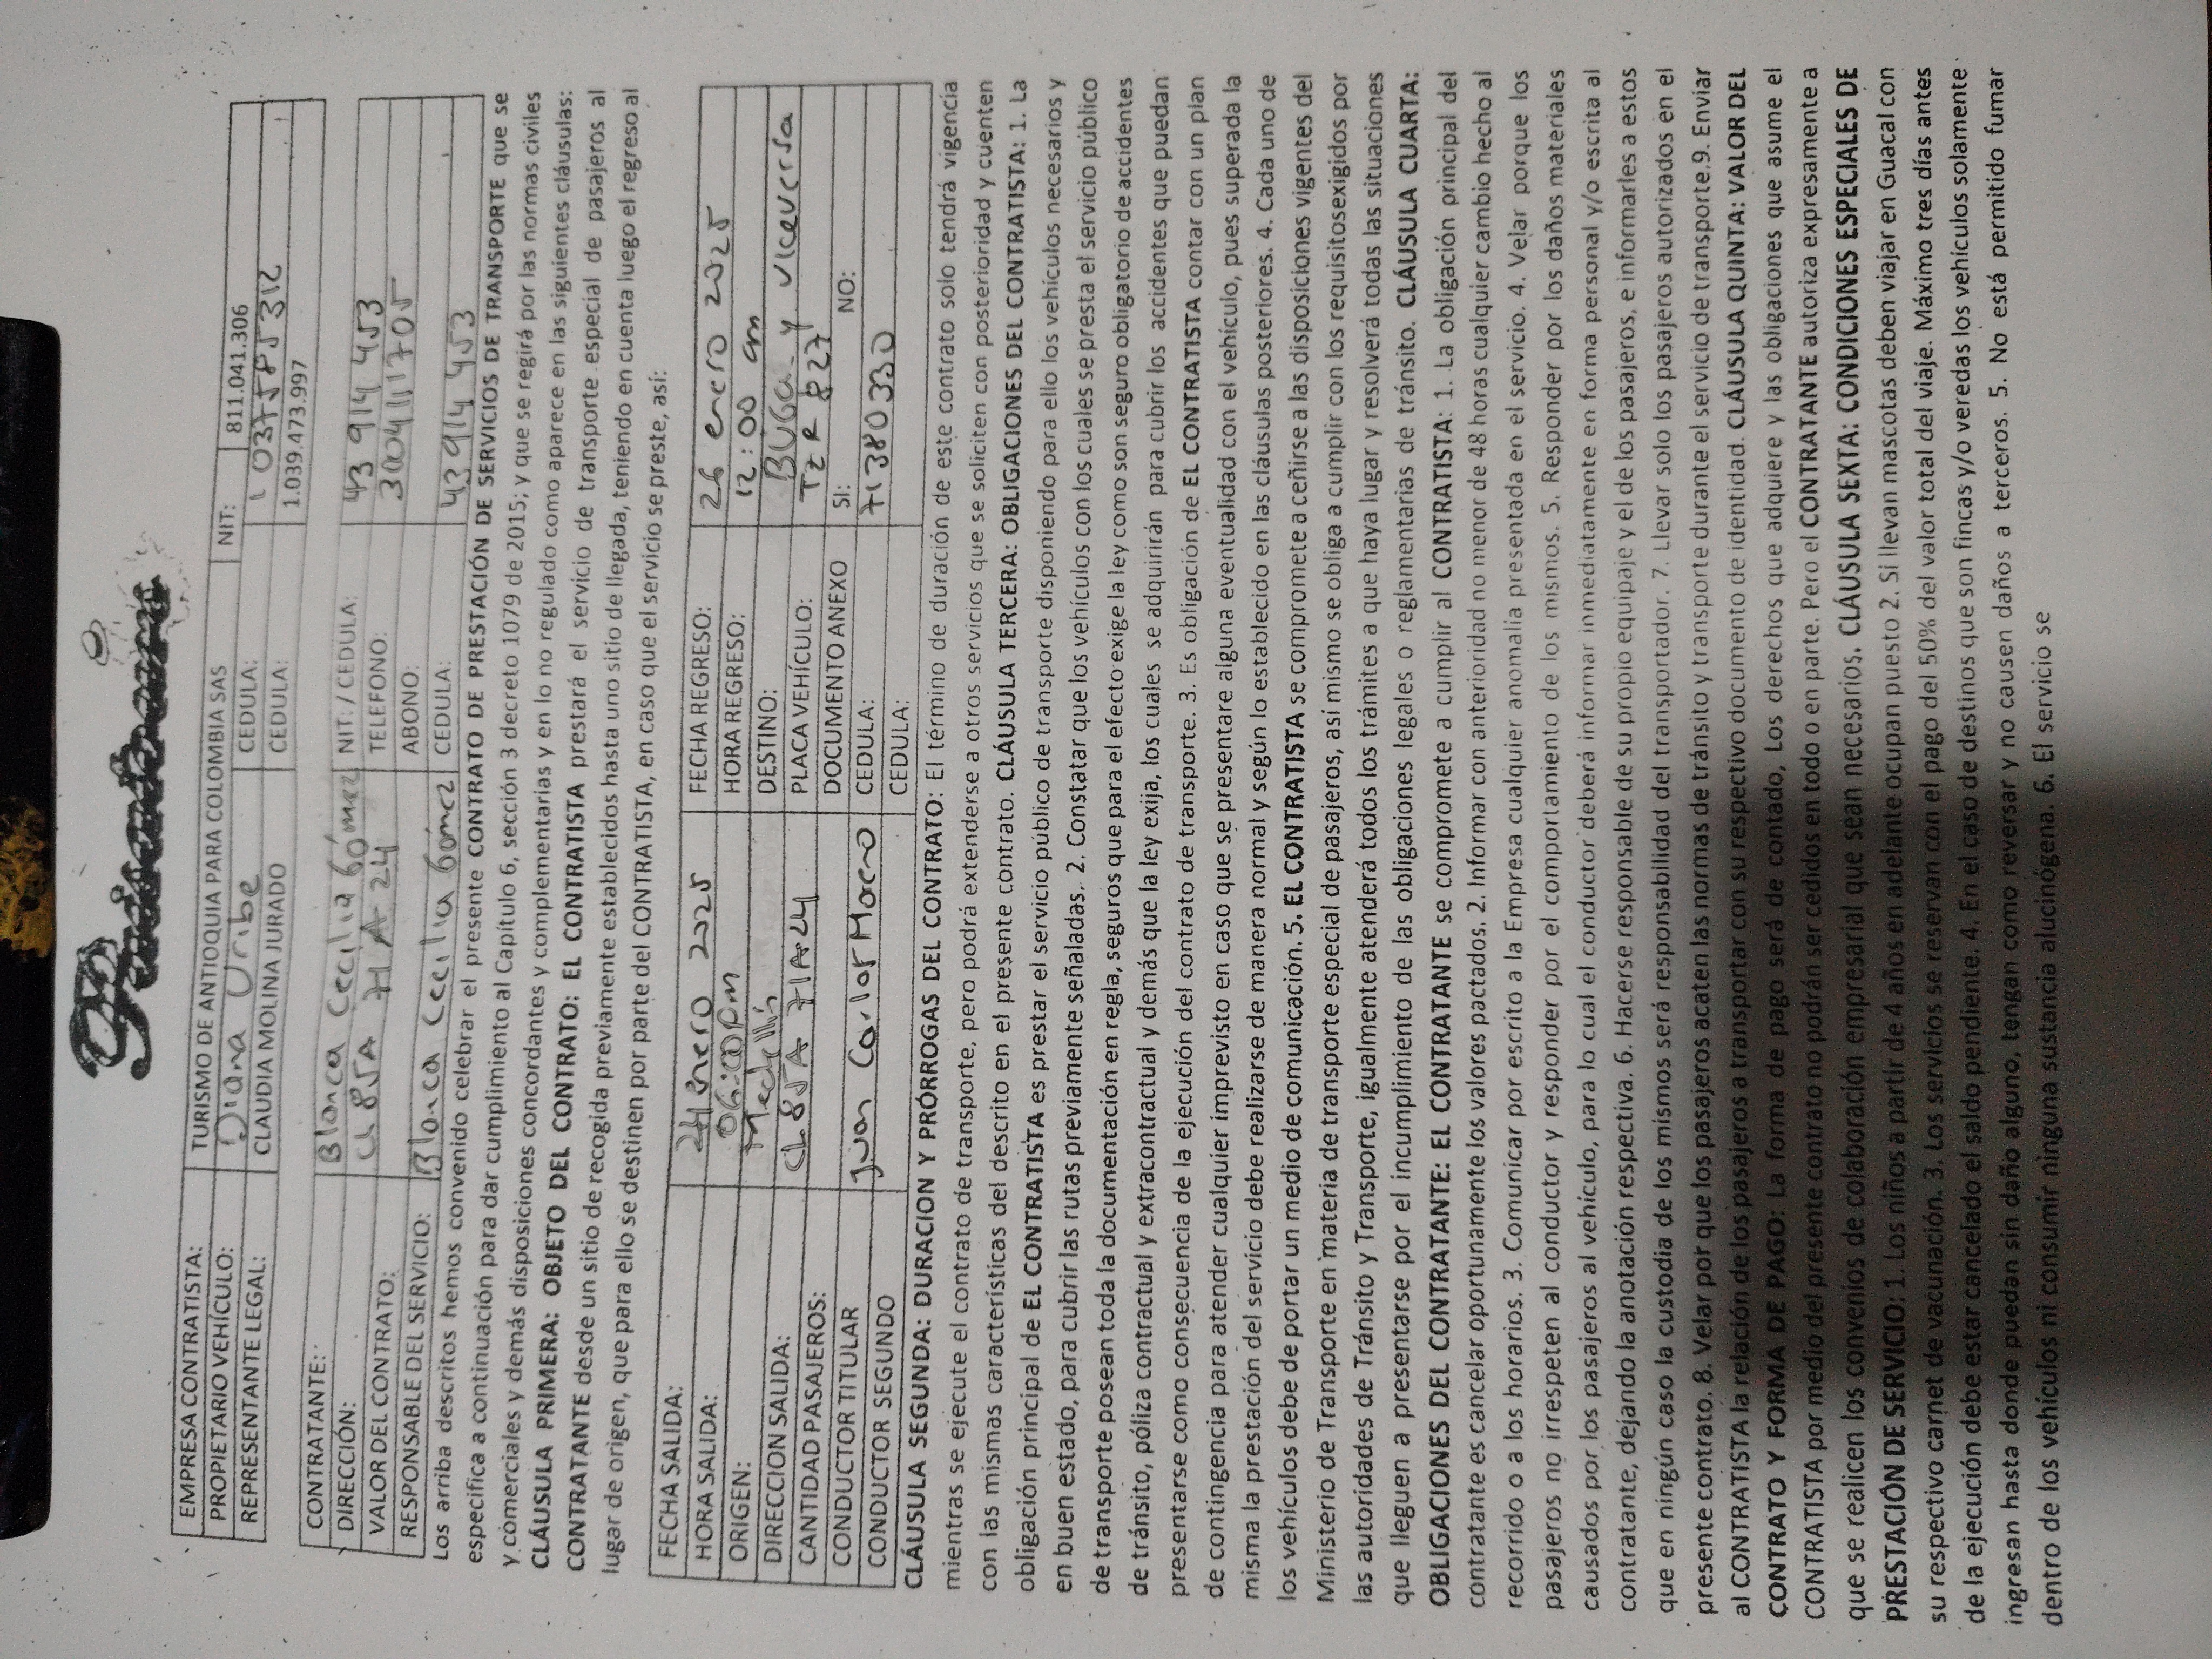 EMPRESA CONTRATISTA: TURISMO DE ANTIOQUIA PARA COLOMBIA SAS NIT: 811.041.306
PROPIETARIO VEHÍCULO: Diana Uribe CEDULA:
REPRESENTANTE LEGAL: CLAUDIA MOLINA JURADO CEDULA: 1.039.473.997
CONTRATANTE: Blanca Cecilia Gómez NIT. / CEDULA: 43 914 453
DIRECCIÓN: CL 85A 71A-24 TELEFONO: 3004111705
VALOR DEL CONTRATO: ABONO:
RESPONSABLE DEL SERVICIO: Blanca Cecilia Gómez CEDULA: 43 914 453
Los arriba descritos hemos convenido celebrar el presente CONTRATO DE PRESTACIÓN DE SERVICIOS DE TRANSPORTE que se
especifica a continuación para dar cumplimiento al Capítulo 6, sección 3 decreto 1079 de 2015; y que se regirá por las normas civiles
y comerciales y demás disposiciones concordantes y complementarias y en lo no regulado como aparece en las siguientes cláusulas:
CLÁUSULA PRIMERA: OBJETO DEL CONTRATO: EL CONTRATISTA prestará el servicio de transporte especial de pasajeros al
CONTRATANTE desde un sitio de recogida previamente establecidos hasta uno sitio de llegada, teniendo en cuenta luego el regreso al
lugar de origen, que para ello se destinen por parte del CONTRATISTA, en caso que el servicio se preste, así:
FECHA SALIDA: 24 enero 2025 FECHA REGRESO: 26 enero 2025
HORA SALIDA: 06:00 pm HORA REGRESO: 12:00 am
ORIGEN: Medellín DESTINO: BUGA y viceversa
DIRECCION SALIDA: CL 85A 71A-24 PLACA VEHÍCULO: TZR 827
CANTIDAD PASAJEROS: DOCUMENTO ANEXO SI: NO:
CONDUCTOR TITULAR Juan Carlos CEDULA: 71380330
CONDUCTOR SEGUNDO CEDULA:
CLÁUSULA SEGUNDA: DURACION Y PRÓRROGAS DEL CONTRATO: El término de duración de este contrato solo tendrá vigencia
mientras se ejecute el contrato de transporte, pero podrá extenderse a otros servicios que se soliciten con posterioridad y cuenten
con las mismas características del descrito en el presente contrato. CLÁUSULA TERCERA: OBLIGACIONES DEL CONTRATISTA: 1. La
obligación principal de EL CONTRATISTA es prestar el servicio público de transporte disponiendo para ello los vehículos necesarios y
en buen estado, para cubrir las rutas previamente señaladas. 2. Constatar que los vehículos con los cuales se presta el servicio público
de transporte posean toda la documentación en regla, seguros que para el efecto exige la ley como son seguro obligatorio de accidentes
de tránsito, póliza contractual y extracontractual y demás que la ley exija, los cuales se adquirirán para cubrir los accidentes que puedan
presentarse como consecuencia de la ejecución del contrato de transporte. 3. Es obligación de EL CONTRATISTA contar con un plan
de contingencia para atender cualquier imprevisto en caso que se presentare alguna eventualidad con el vehículo, pues superada la
misma la prestación del servicio debe realizarse de manera normal y según lo establecido en las cláusulas posteriores. 4. Cada uno de
los vehículos debe de portar un medio de comunicación. 5. EL CONTRATISTA se compromete a ceñirse a las disposiciones vigentes del
Ministerio de Transporte en materia de transporte especial de pasajeros, así mismo se obliga a cumplir con los requisitosexigidos por
las autoridades de Tránsito y Transporte, igualmente atenderá todos los trámites a que haya lugar y resolverá todas las situaciones
que lleguen a presentarse por el incumplimiento de las obligaciones legales o reglamentarias de tránsito. CLÁUSULA CUARTA:
OBLIGACIONES DEL CONTRATANTE: EL CONTRATANTE se compromete a cumplir al CONTRATISTA: 1. La obligación principal del
contratante es cancelar oportunamente los valores pactados. 2. Informar con anterioridad no menor de 48 horas cualquier cambio hecho al
recorrido o a los horarios. 3. Comunicar por escrito a la Empresa cualquier anomalía presentada en el servicio. 4. Velar porque los
pasajeros no irrespeten al conductor y responder por el comportamiento de los mismos. 5. Responder por los daños materiales
causados por los pasajeros al vehículo, para lo cual el conductor deberá informar inmediatamente en forma personal y/o escrita al
contratante, dejando la anotación respectiva. 6. Hacerse responsable de su propio equipaje y el de los pasajeros, e informarles a estos
que en ningún caso la custodia de los mismos será responsabilidad del transportador. 7. Llevar solo los pasajeros autorizados en el
presente contrato. 8. Velar por que los pasajeros acaten las normas de tránsito y transporte durante el servicio de transporte.9. Enviar
al CONTRATISTA la relación de los pasajeros a transportar con su respectivo documento de identidad. CLÁUSULA QUINTA: VALOR DEL
CONTRATO Y FORMA DE PAGO: La forma de pago será de contado, Los derechos que adquiere y las obligaciones que asume el
CONTRATISTA por medio del presente contrato no podrán ser cedidos en todo o en parte. Pero el CONTRATANTE autoriza expresamente a
que se realicen los convenios de colaboración empresarial que sean necesarios. CLÁUSULA SEXTA: CONDICIONES ESPECIALES DE
PRESTACIÓN DE SERVICIO: 1. Los niños a partir de 4 años en adelante ocupan puesto 2. Si llevan mascotas deben viajar en Guacal con
su respectivo carnet de vacunación. 3. Los servicios se reservan con el pago del 50% del valor total del viaje. Máximo tres días antes
de la ejecución debe estar cancelado el saldo pendiente. 4. En el caso de destinos que son fincas y/o veredas los vehículos solamente
ingresan hasta donde puedan sin daño alguno, tengan como reversar y no causen daños a terceros. 5. No está permitido fumar
dentro de los vehículos ni consumir ninguna sustancia alucinógena. 6. El servicio se